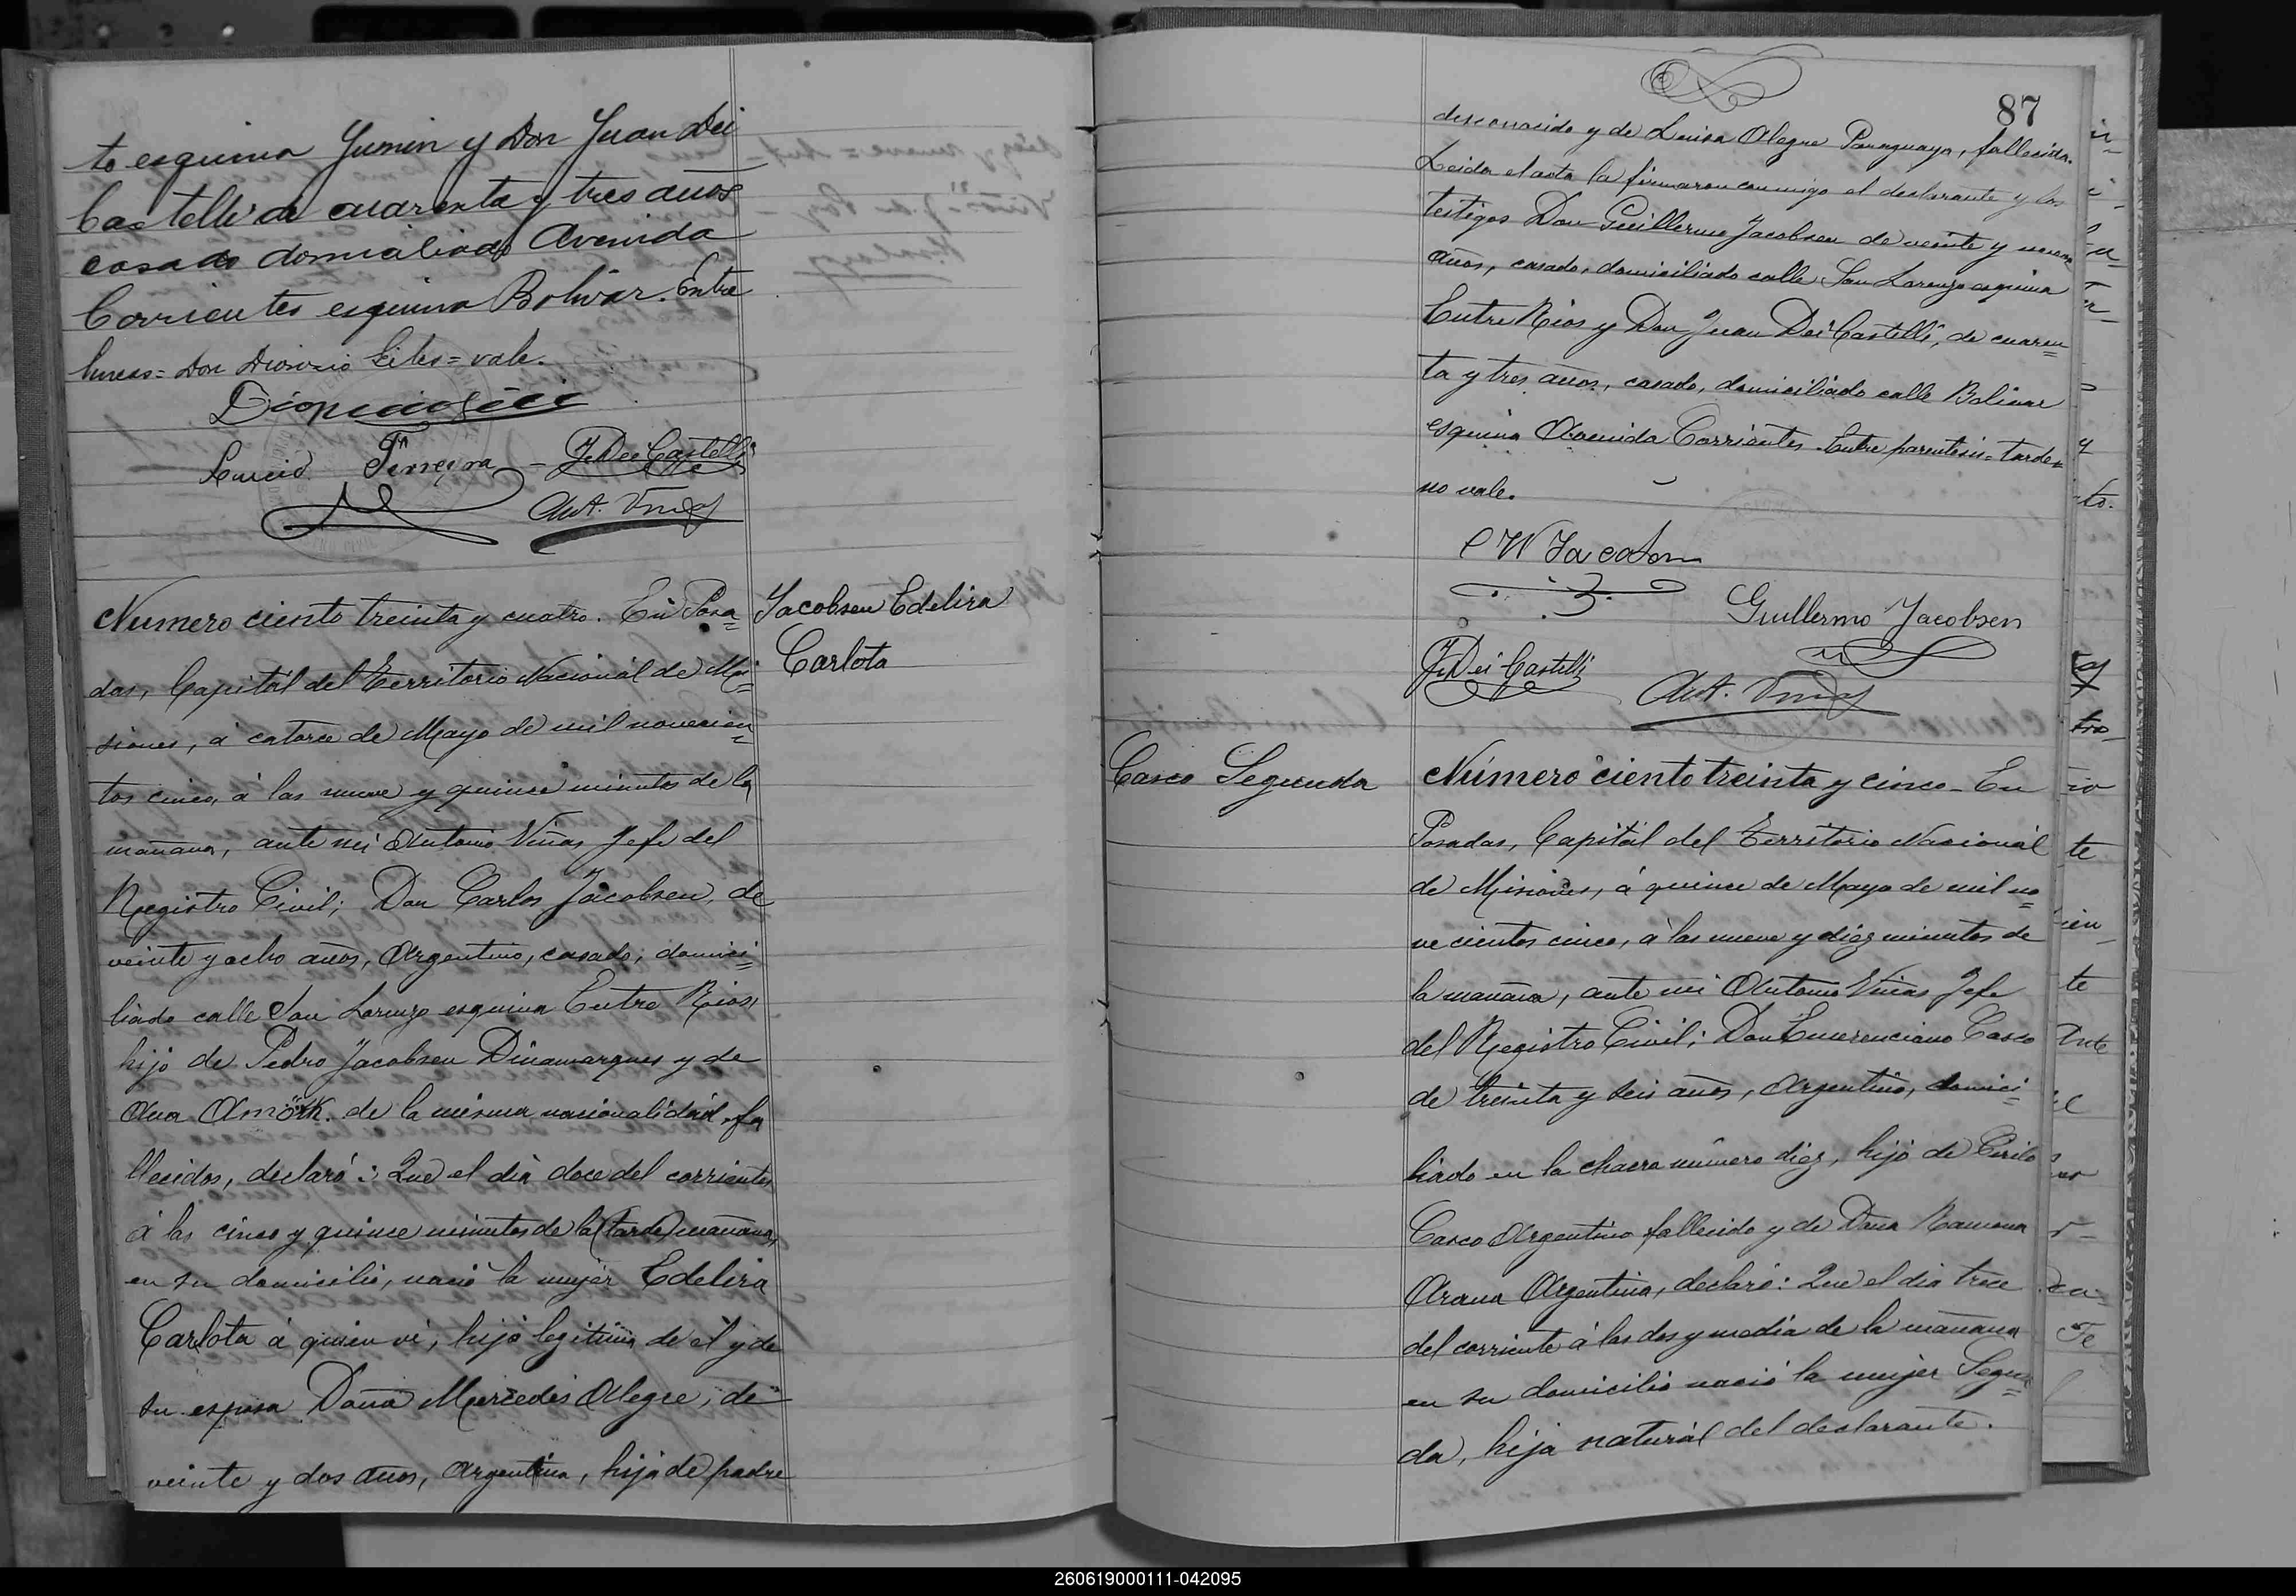 te esquina Junin y Don Juan Dei
Castelli de cuarenta y tres años
casado domiciliado Avenida
Corrientes esquina Bolivar. Entre
lineas = Don Dionisio Giles = vale.
Lucio Ferreyra - J. Dei Castelli
Ant. Viñas
Jacobsen Edelira
Carlota
Numero ciento treinta y cuatro. En Posa=
das, Capital del Territorio Nacional de Mi=
siones, á catorce de Mayo de mil novecien=
tos cinco, á las nueve y quince minutos de la
mañana, ante mi Antonio Viñas Jefe del
Registro Civil; Don Carlos Jacobsen, de
veinte y ocho años, Argentino, casado, domici=
liado calle San Lorenzo esquina Entre Rios,
hijo de Pedro Jacobsen Dinamarques y de
Ana Amörk. de la misma nacionalidad, fa
llecidos, declaró: Que el dia doce del corriente
á las cinco y quince minutos de la (tarde) mañana,
en su domicilio, nació la mujer Edelira
Carlota á quien vi, hija legitima de el y de
su esposa Doña Mercedes Alegre, de
veinte y dos años, Argentina, hija de padre
87
desconocido y de Luisa Alegre Paraguaya, fallecida.
Leida el acta la firmaron conmigo el declarante y los
testigos Don Guillermo Jacobsen de veinte y nueve
años, casado, domiciliado calle San Lorenzo esquina
Entre Rios y Don Juan Dei Castelli, de cuaren=
ta y tres años, casado, domiciliado calle Bolivar
esquina Avenida Corrientes. Entre parentesis = tarde =
no vale.
C W Jacobsen
Guillermo Jacobsen
J. Dei Castelli
Ant. Viñas
Casco Segunda
Número ciento treinta y cinco - En
Posadas, Capital del Territorio Nacional
de Misiones, á quince de Mayo de mil no=
vecientos cinco, á las nueve y diez minutos de
la mañana, ante mi Antonio Viñas Jefe
del Registro Civil; Don Emerenciano Casco
de treinta y seis años, Argentino, domici=
liado en la chacra número diez, hijo de Cirilo
Casco Argentino fallecido y de Doña Ramona
Arana Argentina, declaró: Que el dia trece
del corriente á las dos y media de la mañana
en su domicilio nació la mujer Segun=
da, hija natural del declarante.
260619000111-042095